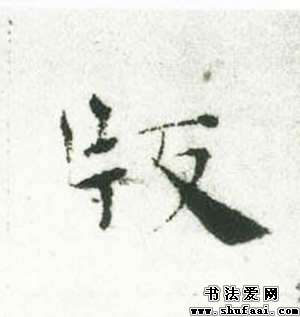 版
书法爱网
www.shufaai.com